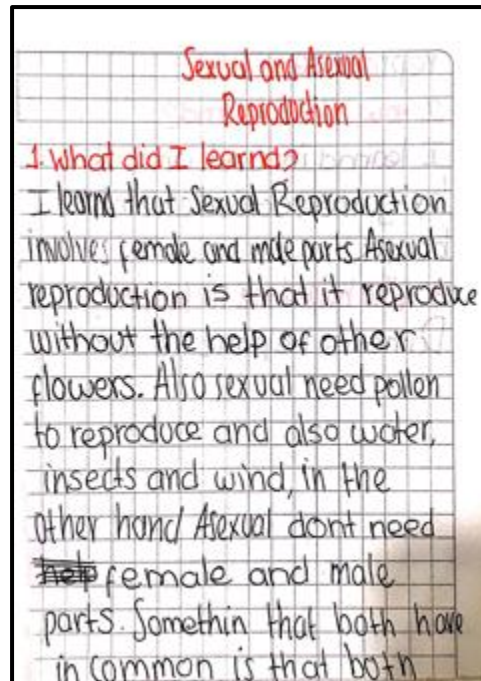 Sexual and Asexual
Reproduction
1. What did I learnd?
I learnd that Sexual Reproduction
involves female and male parts Asexual
reproduction is that it reproduce
without the help of other
flowers. Also sexual need pollen
to reproduce and also water,
insects and wind, in the
other hand Asexual dont need
female and male
parts. Somethin that both have
in common is that both